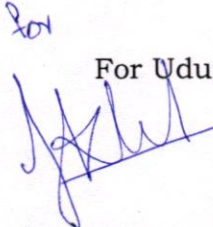 for
For Udu